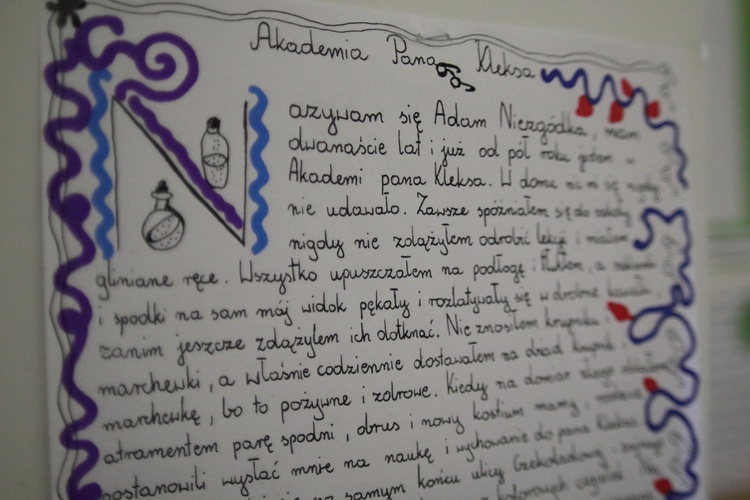 Akademia Pana Kleksa
Nazywam się Adam Niezgódka, mam
dwanaście lat i już od pół roku jestem w
Akademi pana Kleksa. W domu nic mi się nigdy
nie udawało. Zawsze spóźniałem się do szkoły
nigdy nie zdążyłem odrobić lekcji i miałem
gliniane ręce. Wszystko upuszczałem na podłogę i tłukłem, a
i spodki na sam mój widok pękały i rozlatywały się w drobne kawałki,
zanim jeszcze zdążyłem ich dotknąć. Nie znosiłem krupniku i
marchewki, a właśnie codziennie dostawałem na obiad krupnik i
marchewkę, bo to pożywne i zdrowe. Kiedy na domiar złego oblałem
atramentem parę spodni, obrus i nowy kostium mamy, rodzice
postanowili wysłać mnie na naukę i wychowanie do pana Kleksa
na samym końcu ulicy Czekoladowej